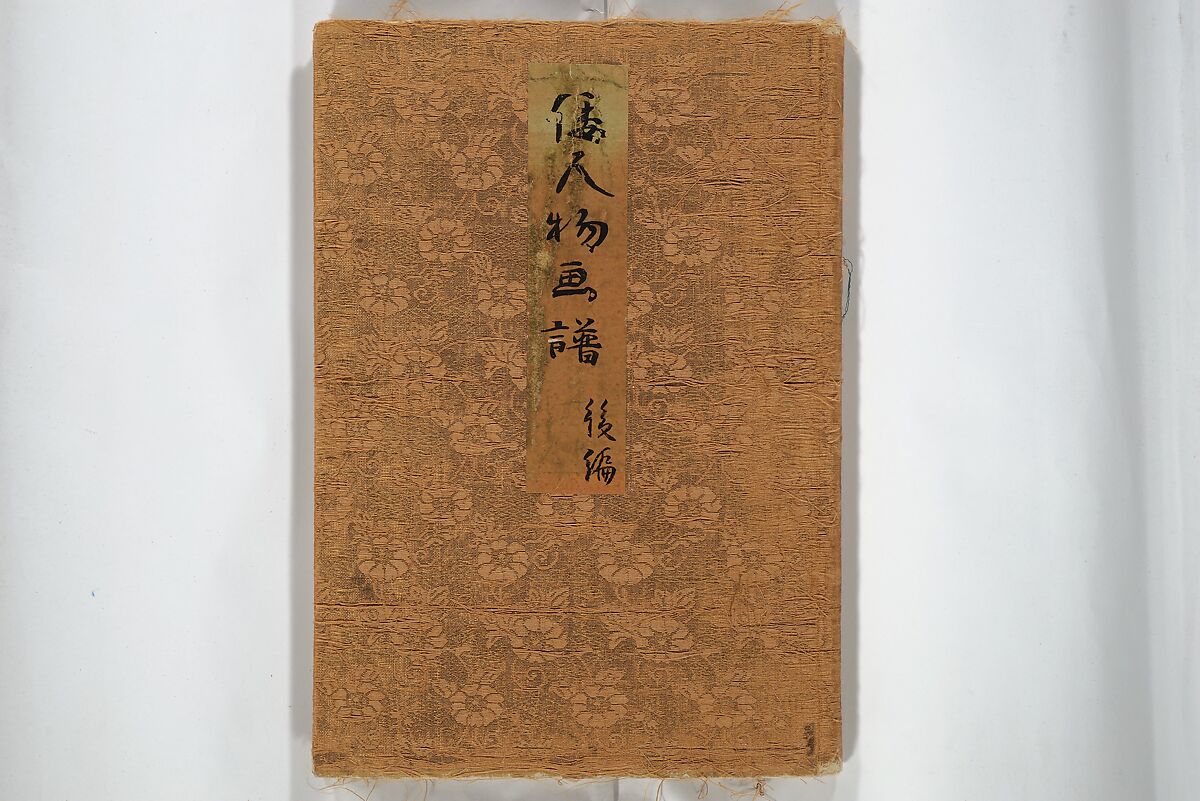 倭人物画譜
後編